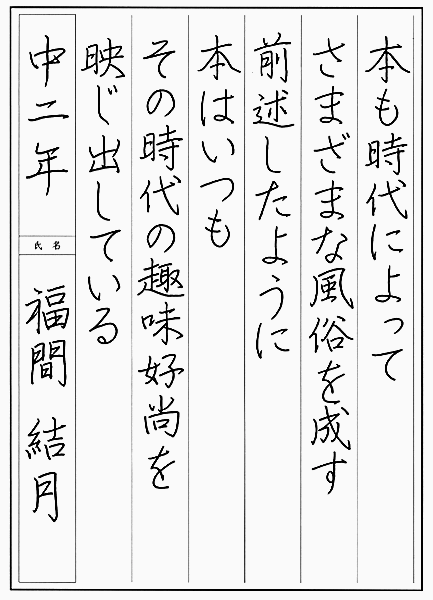 本も時代によって
さまざまな風俗を成す
前述したように
本はいつも
その時代の趣味好尚を
映じ出している
中二年
氏名
福間 結月